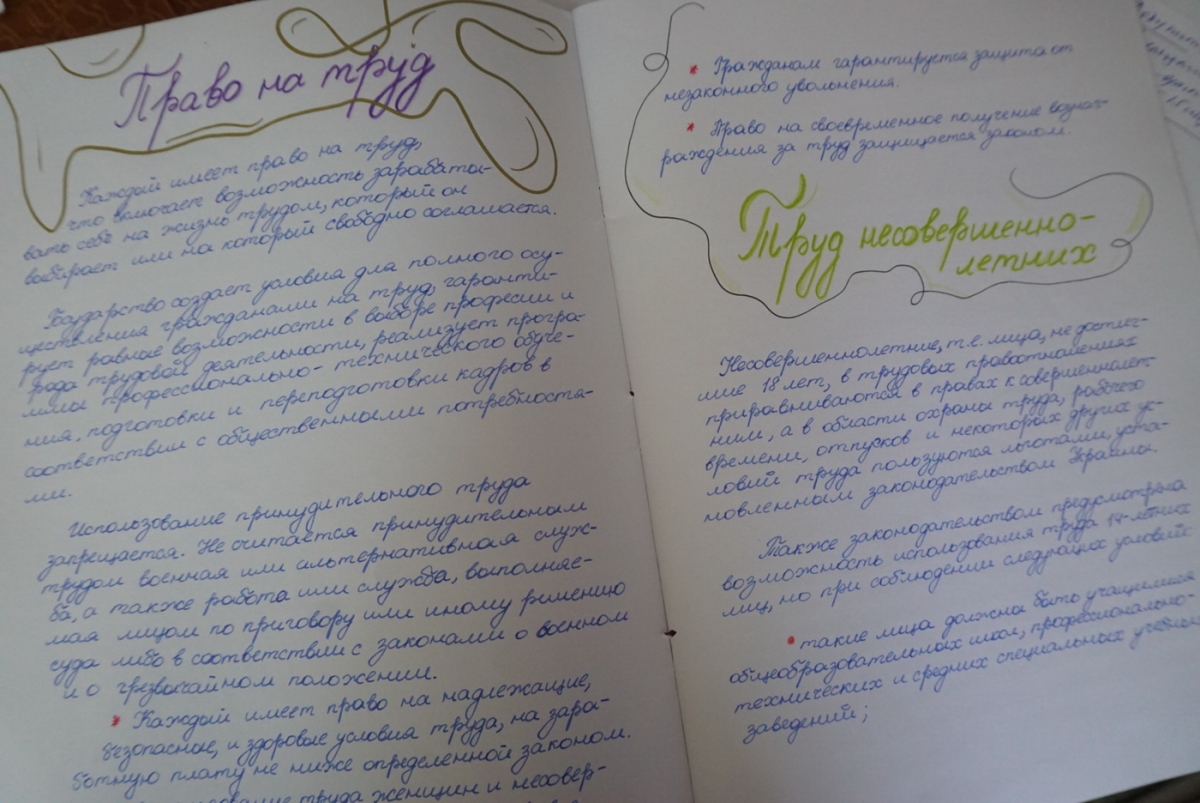 Право на труд
Каждый имеет право на труд,
что включает возможность зарабаты-
вать себе на жизнь трудом, который он
выбирает или на который свободно соглашается.
Государство создает условия для полного осу-
ществления гражданами на труд, гаранти-
рует равные возможности в выборе професии и
рода трудовой деятельности, реализует програ-
ммы професионально-технического обуче-
ния, подготовки и переподготовки кадров в
соответствии с общественными потребностя-
ми.
Использование принудительного труда
запрещается. Не считается принудительным
трудом военная или альтернативная служ-
ба, а также работа или служба, выполняе-
мая лицом по приговору или иному решению
суда либо в соответствии с законами о военном
и о чрезвычайном положении.
* Каждый имеет право на надлежащие,
безопасные, и здоровые условия труда, на зара-
ботную плату не ниже определенной законом.
труда женщин и несовер-
* Гражданам гарантируется защита от
незаконного увольнения.
* Право на своевременное получение вознаг-
раждения за труд защищается законом.
Труд несовершенно-
летних
Несовершеннолетние, т.е. лица, не достиг-
шие 18 лет, в трудовых правоотношениях
приравниваются в правах к совершеннолет-
ним, а в области охраны труда, рабочего
времени, отпусков и некоторых других ус-
ловий труда пользуются льготами, уста-
новленным законодательством Украины.
Также законодательством предусмотрена
возможность использования труда 14-летних
лиц, но при соблюдении следующих условий:
• такие лица должны быть учащимися
общеобразовательных школ, професионально-
технических и средних специальных учебных
заведений;